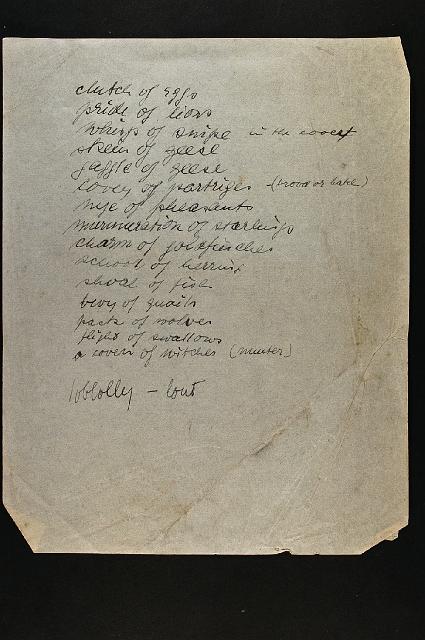 clutch of eggs
pride of lions
whisp of snipe in the
skein of geese
gaggle of geese
covey of partriges - (brood or
nye of pheasants
murmuration of starlings
charm of goldfinches
school of herring
shoal of fish
bevy of quails
pack of wolves
flight of swallows
a coven of witches
loblolly - lout